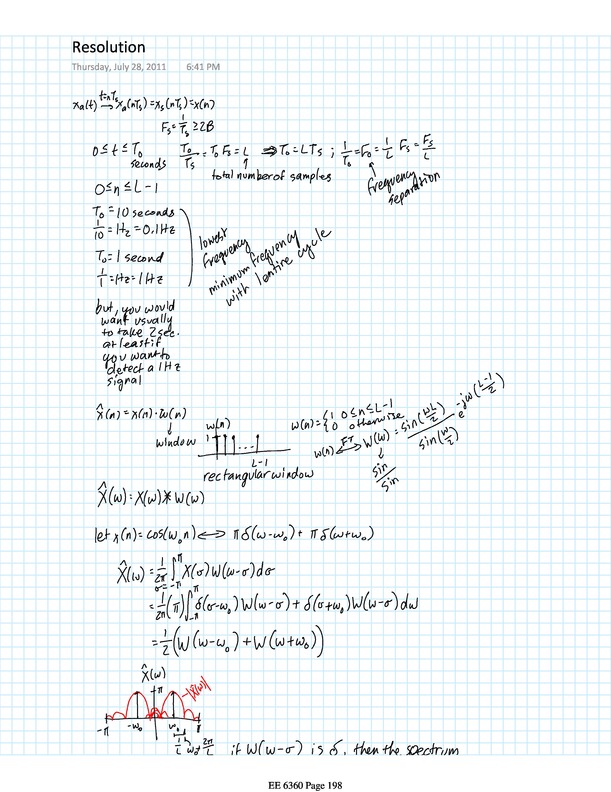 Resolution
Thursday, July 28, 2011 6:41 PM
xa(t) →(t=nTs) xa(nTs)=xs(nTs)=x(n)
Fs=1/Ts≥2B
0≤t≤To seconds To/Ts=ToFs=L ⇒To=LTs ; 1/To=Fo=1/L Fs=Fs/L
total number of samples
frequency separation
0≤n≤L-1
To=10 seconds
1/10=Hz=0.1Hz
To=1 second
1/1=Hz=1Hz
lowest
frequency
minimum frequency
with 1entire cycle
but, you would
want usually
to take 2sec.
at least if
you want to
detect a 1Hz
signal
x̂(n)=x(n)·w(n)
window
w(n)
1
...
L-1
rectangular window
w(n)={1 0≤n≤L-1
0 otherwise
w(n) ↔(FT) W(ω)=sin(ωL/2)/sin(ω/2) e^-jω(L-1/2)
sin/sin
X̂(ω)=X(ω)*W(ω)
let x(n)=cos(ω₀n)⟷πδ(ω-ω₀)+πδ(ω+ω₀)
X̂(ω)=1/2π ∫σ=-π^π X(σ)W(ω-σ)dσ
=1/2π(π)∫-π^π δ(σ-ω₀)W(ω-σ)+δ(σ+ω₀)W(ω-σ)dω
=1/2(W(ω-ω₀)+W(ω+ω₀))
X̂(ω)
π
-π -ω₀ ω₀ π
1/L ω₀+2π/L if W(ω-σ) is δ, then the spectrum
EE 6360 Page 198